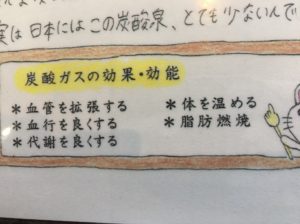 実は日本にはこの炭酸泉、とても少ないんで
炭酸ガスの効果・効能
*血管を拡張する
*血行を良くする
*代謝を良くする
*体を温める
*脂肪燃焼